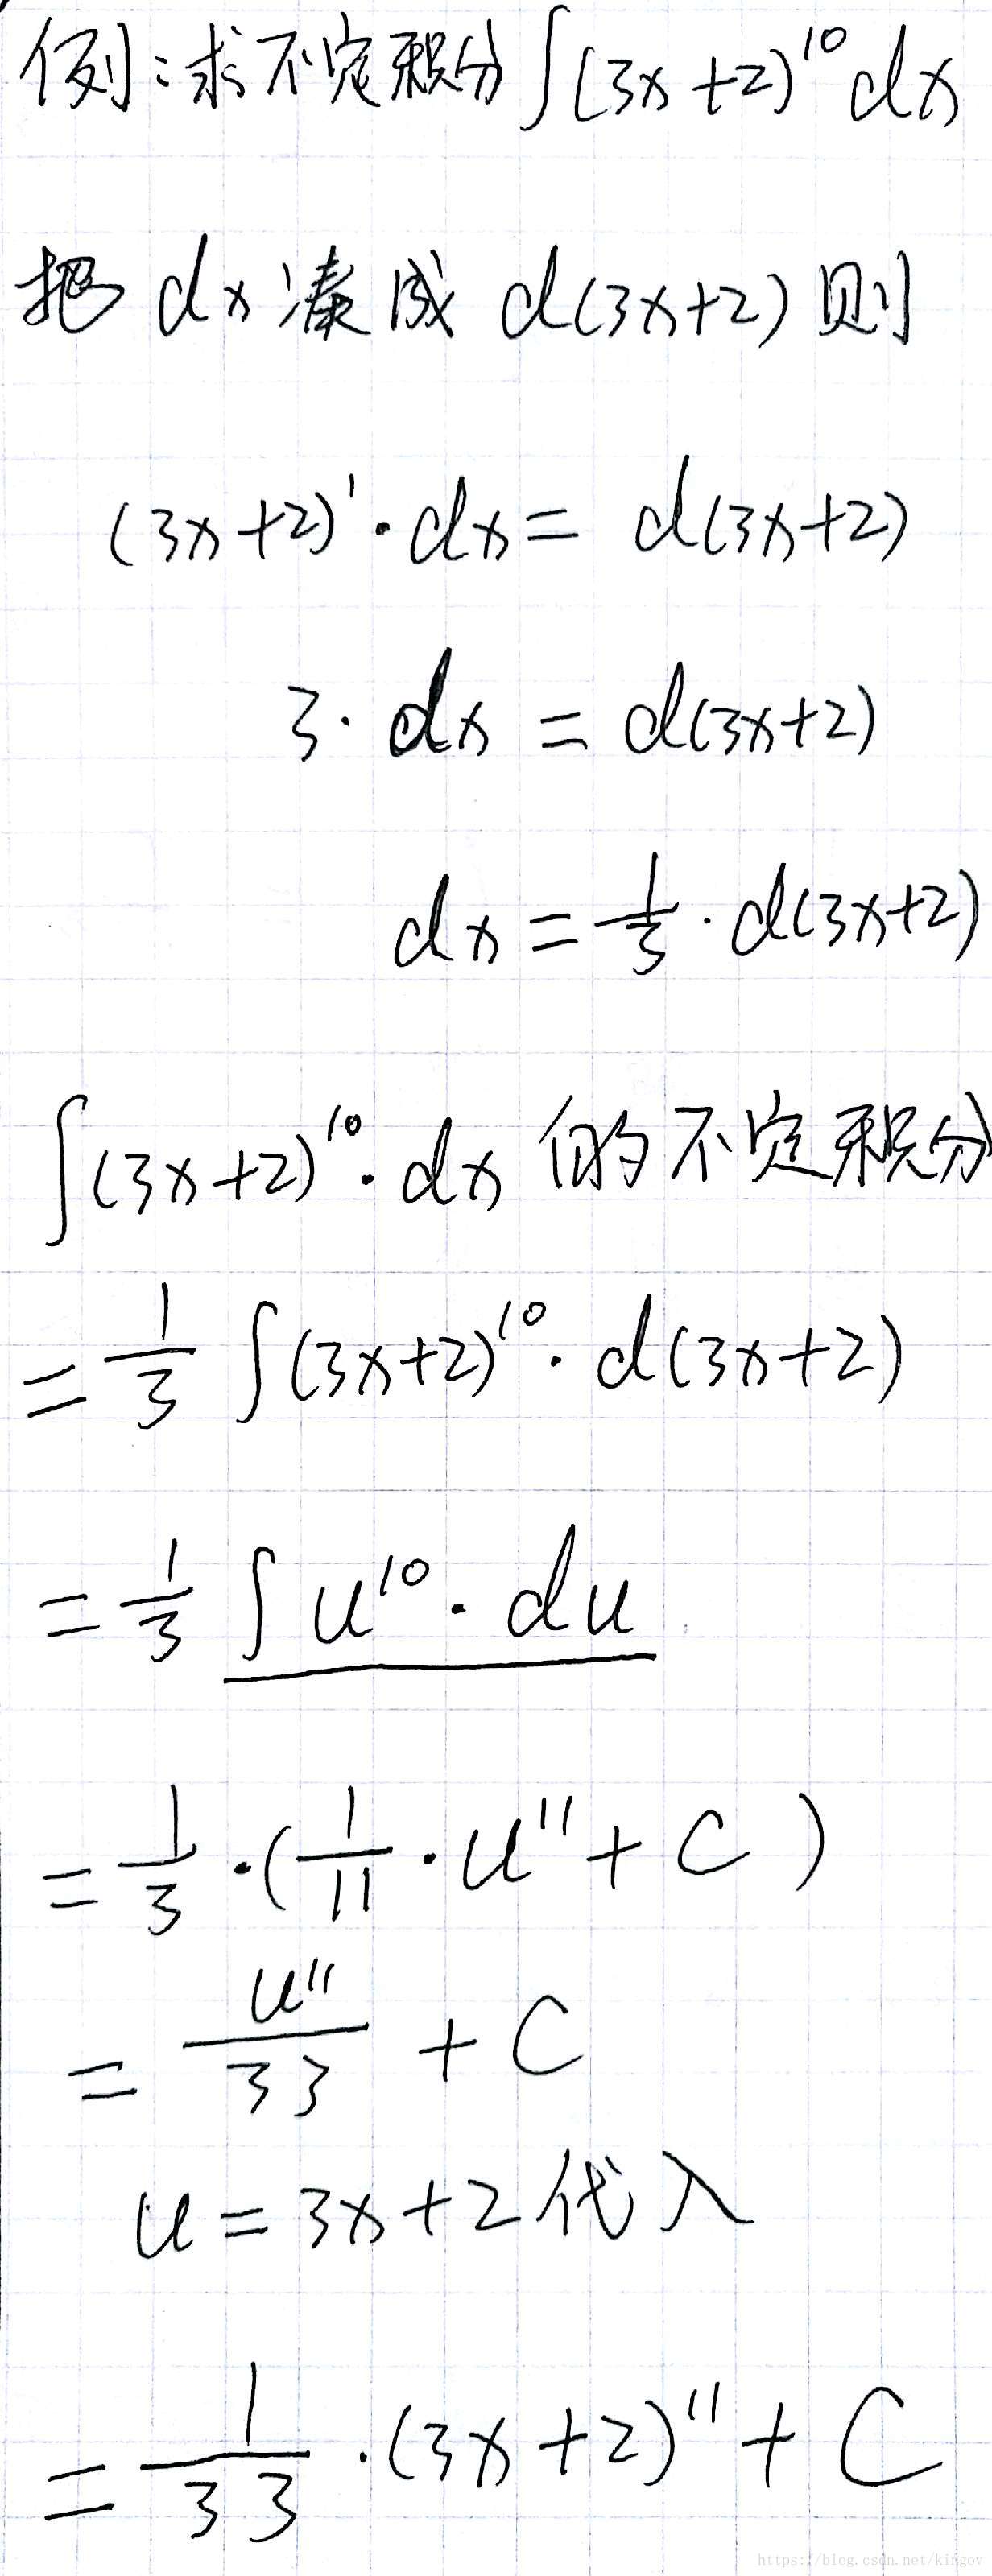 例:求不定积分∫(3x+2)¹⁰dx
把 dx 凑成 d(3x+2) 则
(3x+2)'·dx = d(3x+2)
3·dx = d(3x+2)
dx = 1/3·d(3x+2)
∫(3x+2)¹⁰·dx 的不定积分
= 1/3 ∫(3x+2)¹⁰·d(3x+2)
= 1/3 ∫u¹⁰·du
= 1/3·(1/11·u¹¹+C)
= u¹¹/33 + C
u = 3x+2 代入
= 1/33·(3x+2)¹¹ + C
https://blog.csdn.net/kingov